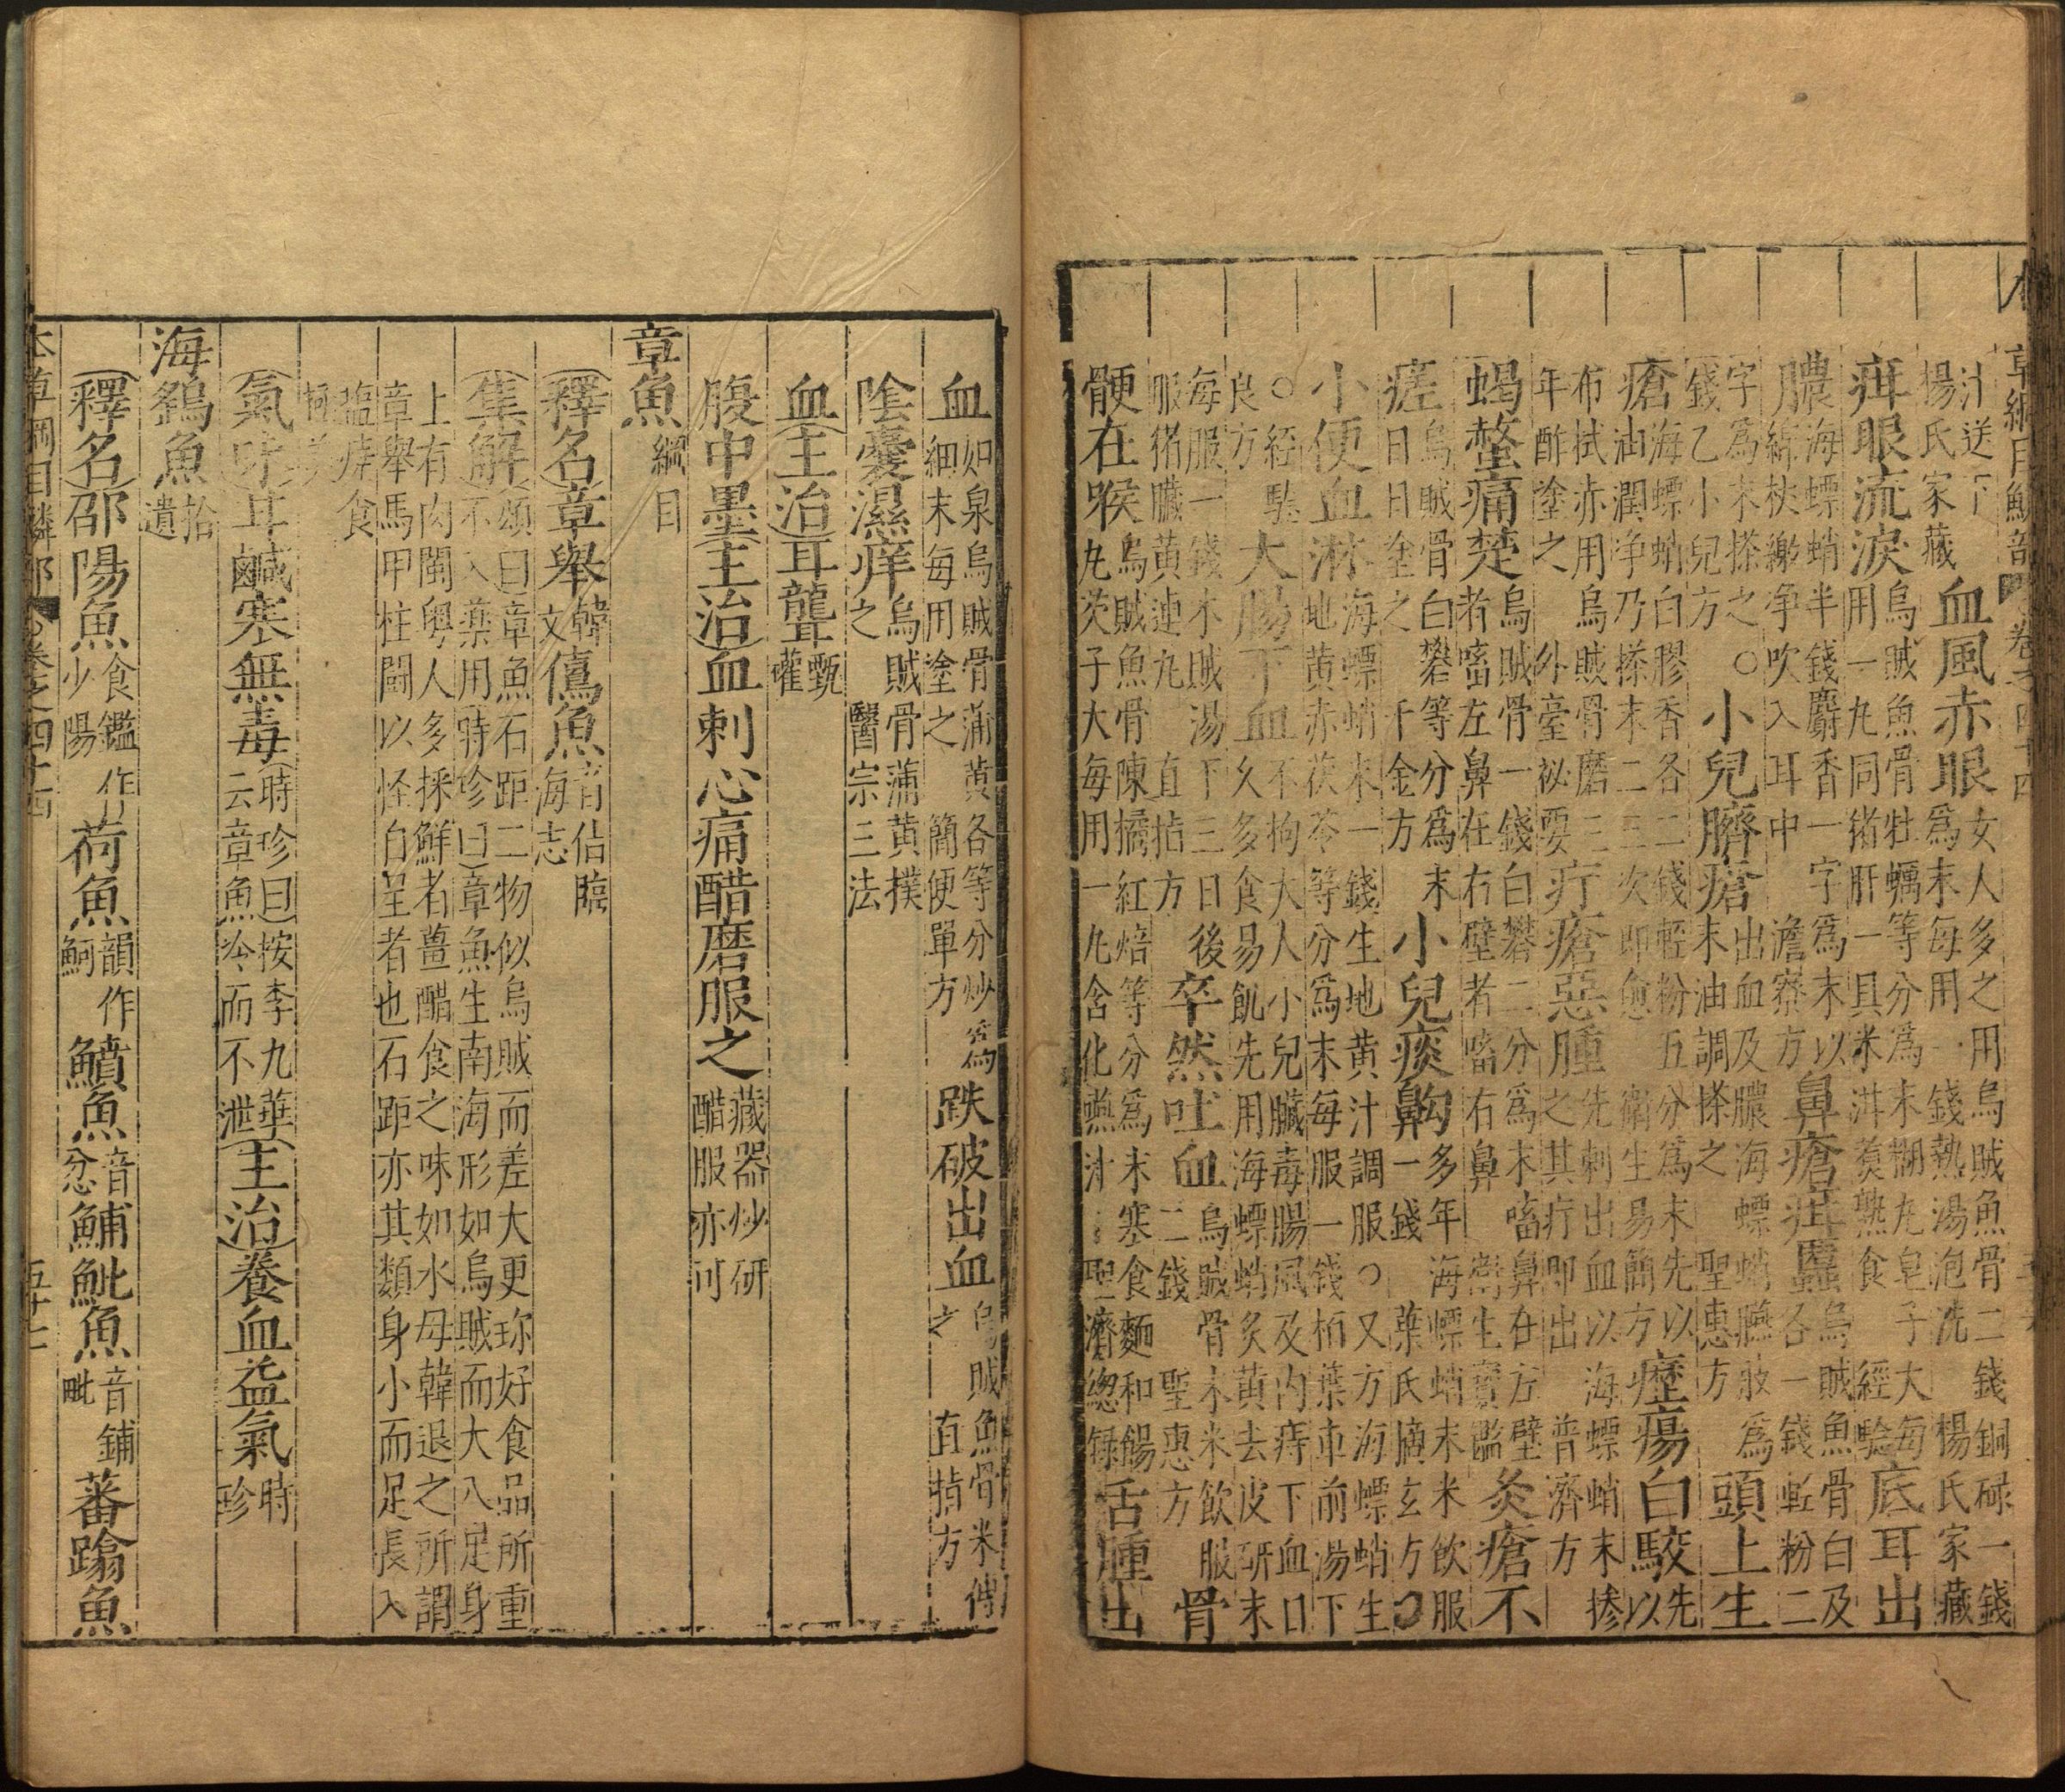 草綱目鱗部 卷之四十四
汁送下楊氏家藏 血風赤眼 女人多之用烏賊魚骨二錢銅碌一錢為末每用一錢熱湯泡洗 楊氏家藏
疳眼流淚 烏賊魚骨牡蠣等分為末糊丸皂子大每用一丸同猪肝一具米泔煑熟食 經驗 底耳出
膿 海螵蛸半錢麝香一字為末以綿杖繳净吹入耳中 澹寮方 鼻瘡疳䘌 烏賊魚骨白及各一錢輕粉二
字為末搽之 錢乙小兒方 ○小兒臍瘡 出血及膿海螵蛸臙脂為末油調搽之 聖惠方 頭上生
瘡 海螵蛸白膠香各二錢輕粉五分為末先以油潤净乃搽末二三次即愈 衛生易簡方 癧瘍白駮 先以
布拭赤用烏賊骨磨三年酢塗之 外臺祕要 疔瘡惡腫 先刺出血以海螵蛸末摻之其疔即出 普濟方
蝎螫痛楚 烏賊骨一錢白礬二分為末㗜鼻在左壁者㗜左鼻在右壁者㗜右鼻 衛生寳鑑 灸瘡不
瘥 烏賊骨白礬等分為末日日塗之 千金方 小兒痰齁多年 海螵蛸末米飲服一錢 葉氏摘玄方○
小便血淋 海螵蛸末一錢生地黄汁調服○又方海螵蛸生地黄赤茯苓等分為末每服一錢柏葉車前湯下
○經騐良方 大腸下血 不拘大人小兒臟毒腸風及内痔下血日久多食易飢先用海螵蛸炙黄去皮研末
每服一錢木賊湯下三日後服猪臟黄連丸 直指方 卒然吐血 烏賊骨末米飲服二錢 聖惠方 骨
骾在喉 烏賊魚骨陳橘紅焙等分為末寒食麵和餳丸芡子大每用一丸含化嚥汁 聖濟總録 舌腫出
血 如泉烏賊骨蒲黄各等分炒為細末每用塗之 簡便單方 跌破出血 烏賊魚骨末傅之 直指方
陰囊濕痒 烏賊骨蒲黄撲之 醫宗三法
血 主治 耳聾 甄權
腹中墨 主治 血刺心痛醋磨服之 藏器炒研醋服亦可
章魚 綱目
釋名 章舉 韓文 僐魚 音佶臨海志
集解 頌曰章魚石距二物似烏賊而差大更珎好食品所重不入藥用 時珍曰章魚生南海形如烏賊而大八足身
上有肉閩粤人多採鮮者薑醋食之味如水母韓退之所謂章舉馬甲柱鬬以怪自呈者也石距亦其類身小而足長入
鹽燒食極美
氣味 甘鹹寒無毒 時珍曰按李九華云章魚冷而不泄 主治 養血益氣 時珍
海鷂魚 拾遺
釋名 邵陽魚 食鑑作少陽 荷魚 韻作魺 鱝魚 音忿 鯆魮魚 音鋪毗 蕃蹹魚
本草綱目鱗部 卷之四十四 五十七